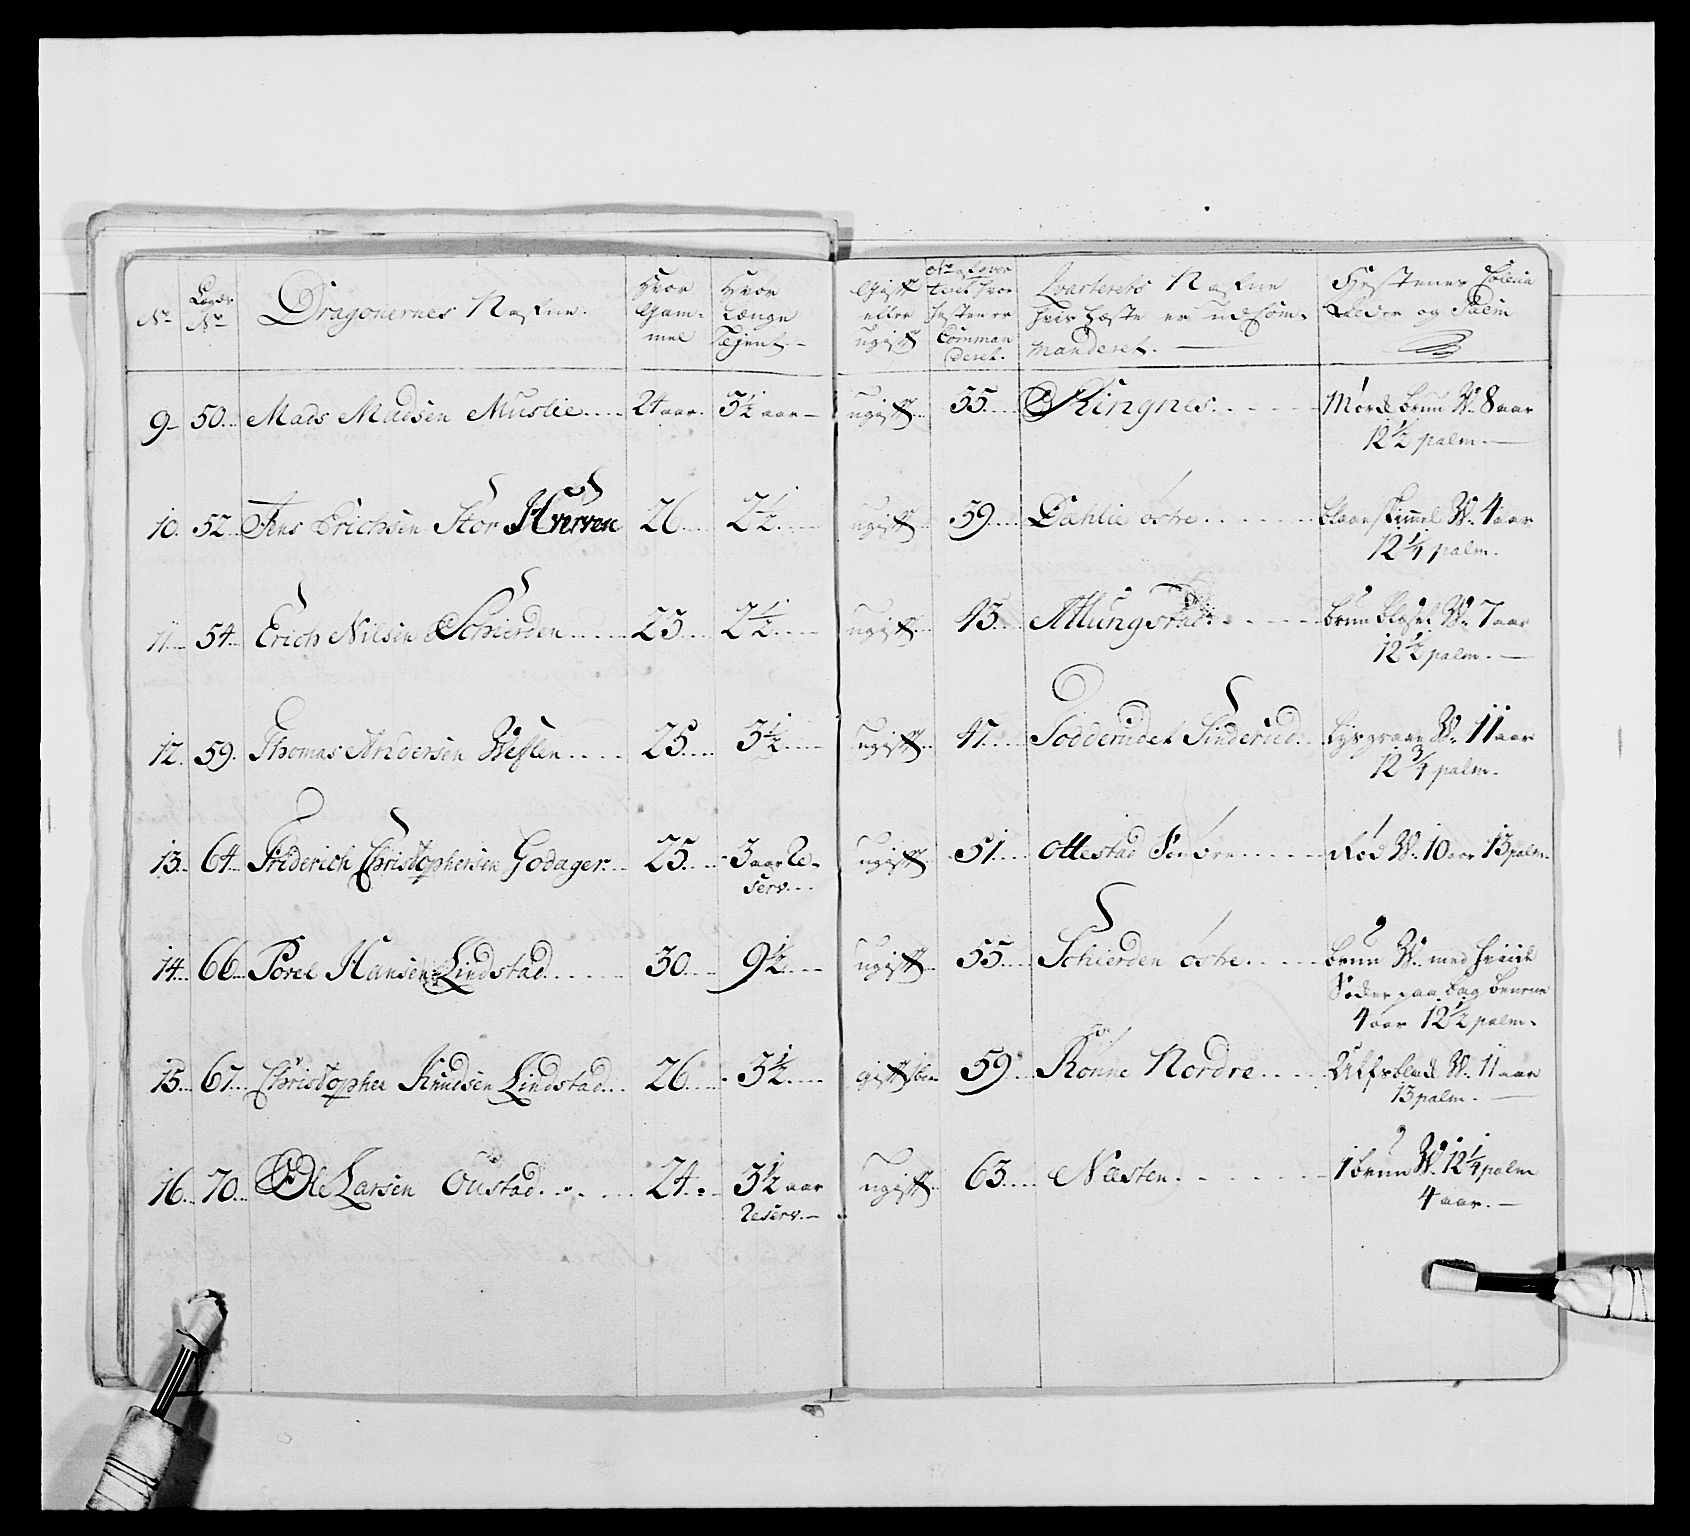 No Qvarr: No Dragonernes Nafne. Hvor Gam- mel Hvor Længe Tjent. Gift eller ugift No af qvar teret hvor hesten er Comman deret. Qvarterets Nafne hvis Hæste er udkom- manderet. Hestenes Coleur Alder og Palm
9 50 Mads Madsen Muslie 24 aar 3½ aar ugift 55 Ringnes Mørk brun W. 8 aar
12½ palm.
10. 52 Jens Erichsen Stor Hverven 26 2½ ugift 59 Dahlie østre blaaskimmel W. 4 aar
12¼ palm.
11 54 Erich Nilsen Schierden 23 2½ ugift 43 Atlungstad brun blaset W. 7 aar
12½ palm.
12. 59. Thomas Andersen Weslen 25 3½ ugift 47 Todderudet Sinderud Lysgraae W. 11 aar
12¾ palm.
13. 64 Friderich Christophersen Godager 25 3 aar Re-
serv. ugift 51 Ottestad Søndre Rød W. 10 aar 13 palm.
14. 66 Povel Hansen Lindstad 30 9½ ugift 55 Schierden østre brun W. med hviide
Søder paa bag benene
4 aar 12½ palm.
15. 67 Christopher Knudsen Lindstad 26 3½ gift 59 Rønne Nordre Ulfsblak W. 11 aar
13 palm.
16. 70 Ole Larsen Oustad 24 3½ aar
Reserv. ugift 63 Næsten 1 brun W. 12¼ palm
4 aar.